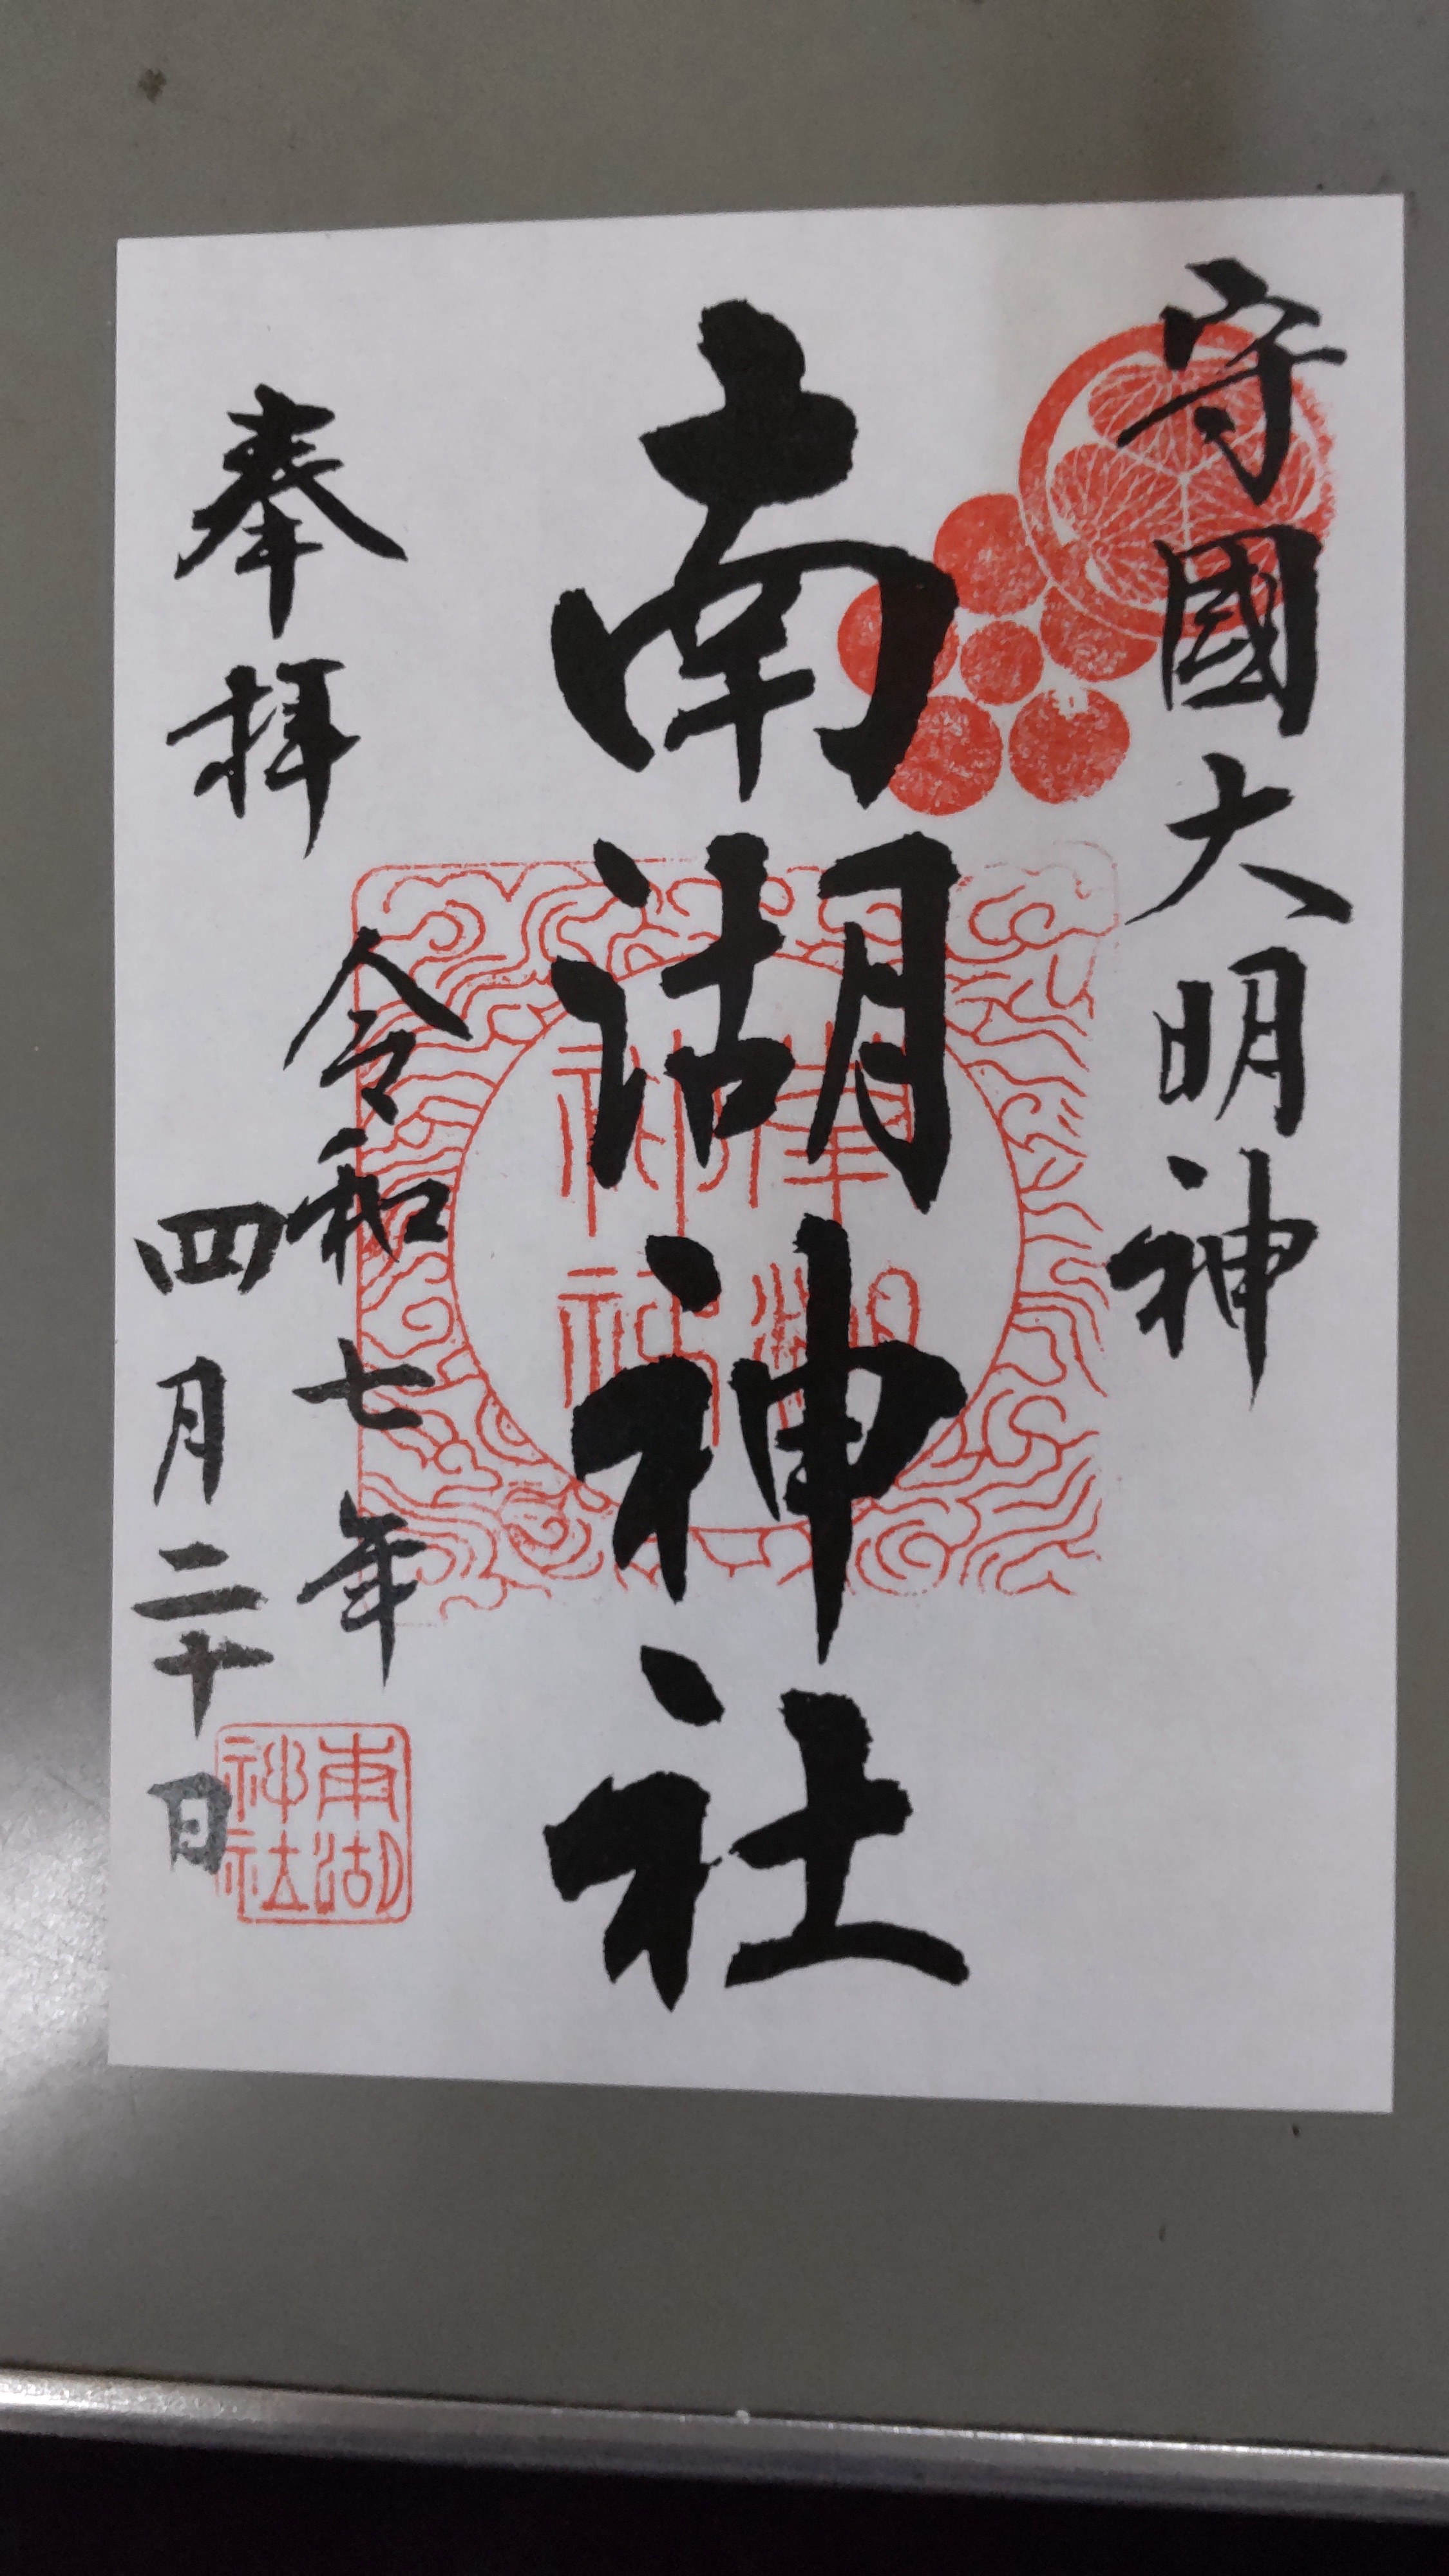 守國大明神
南湖神社
奉拝
令和七年
四月二十日
南湖神社
南湖神社